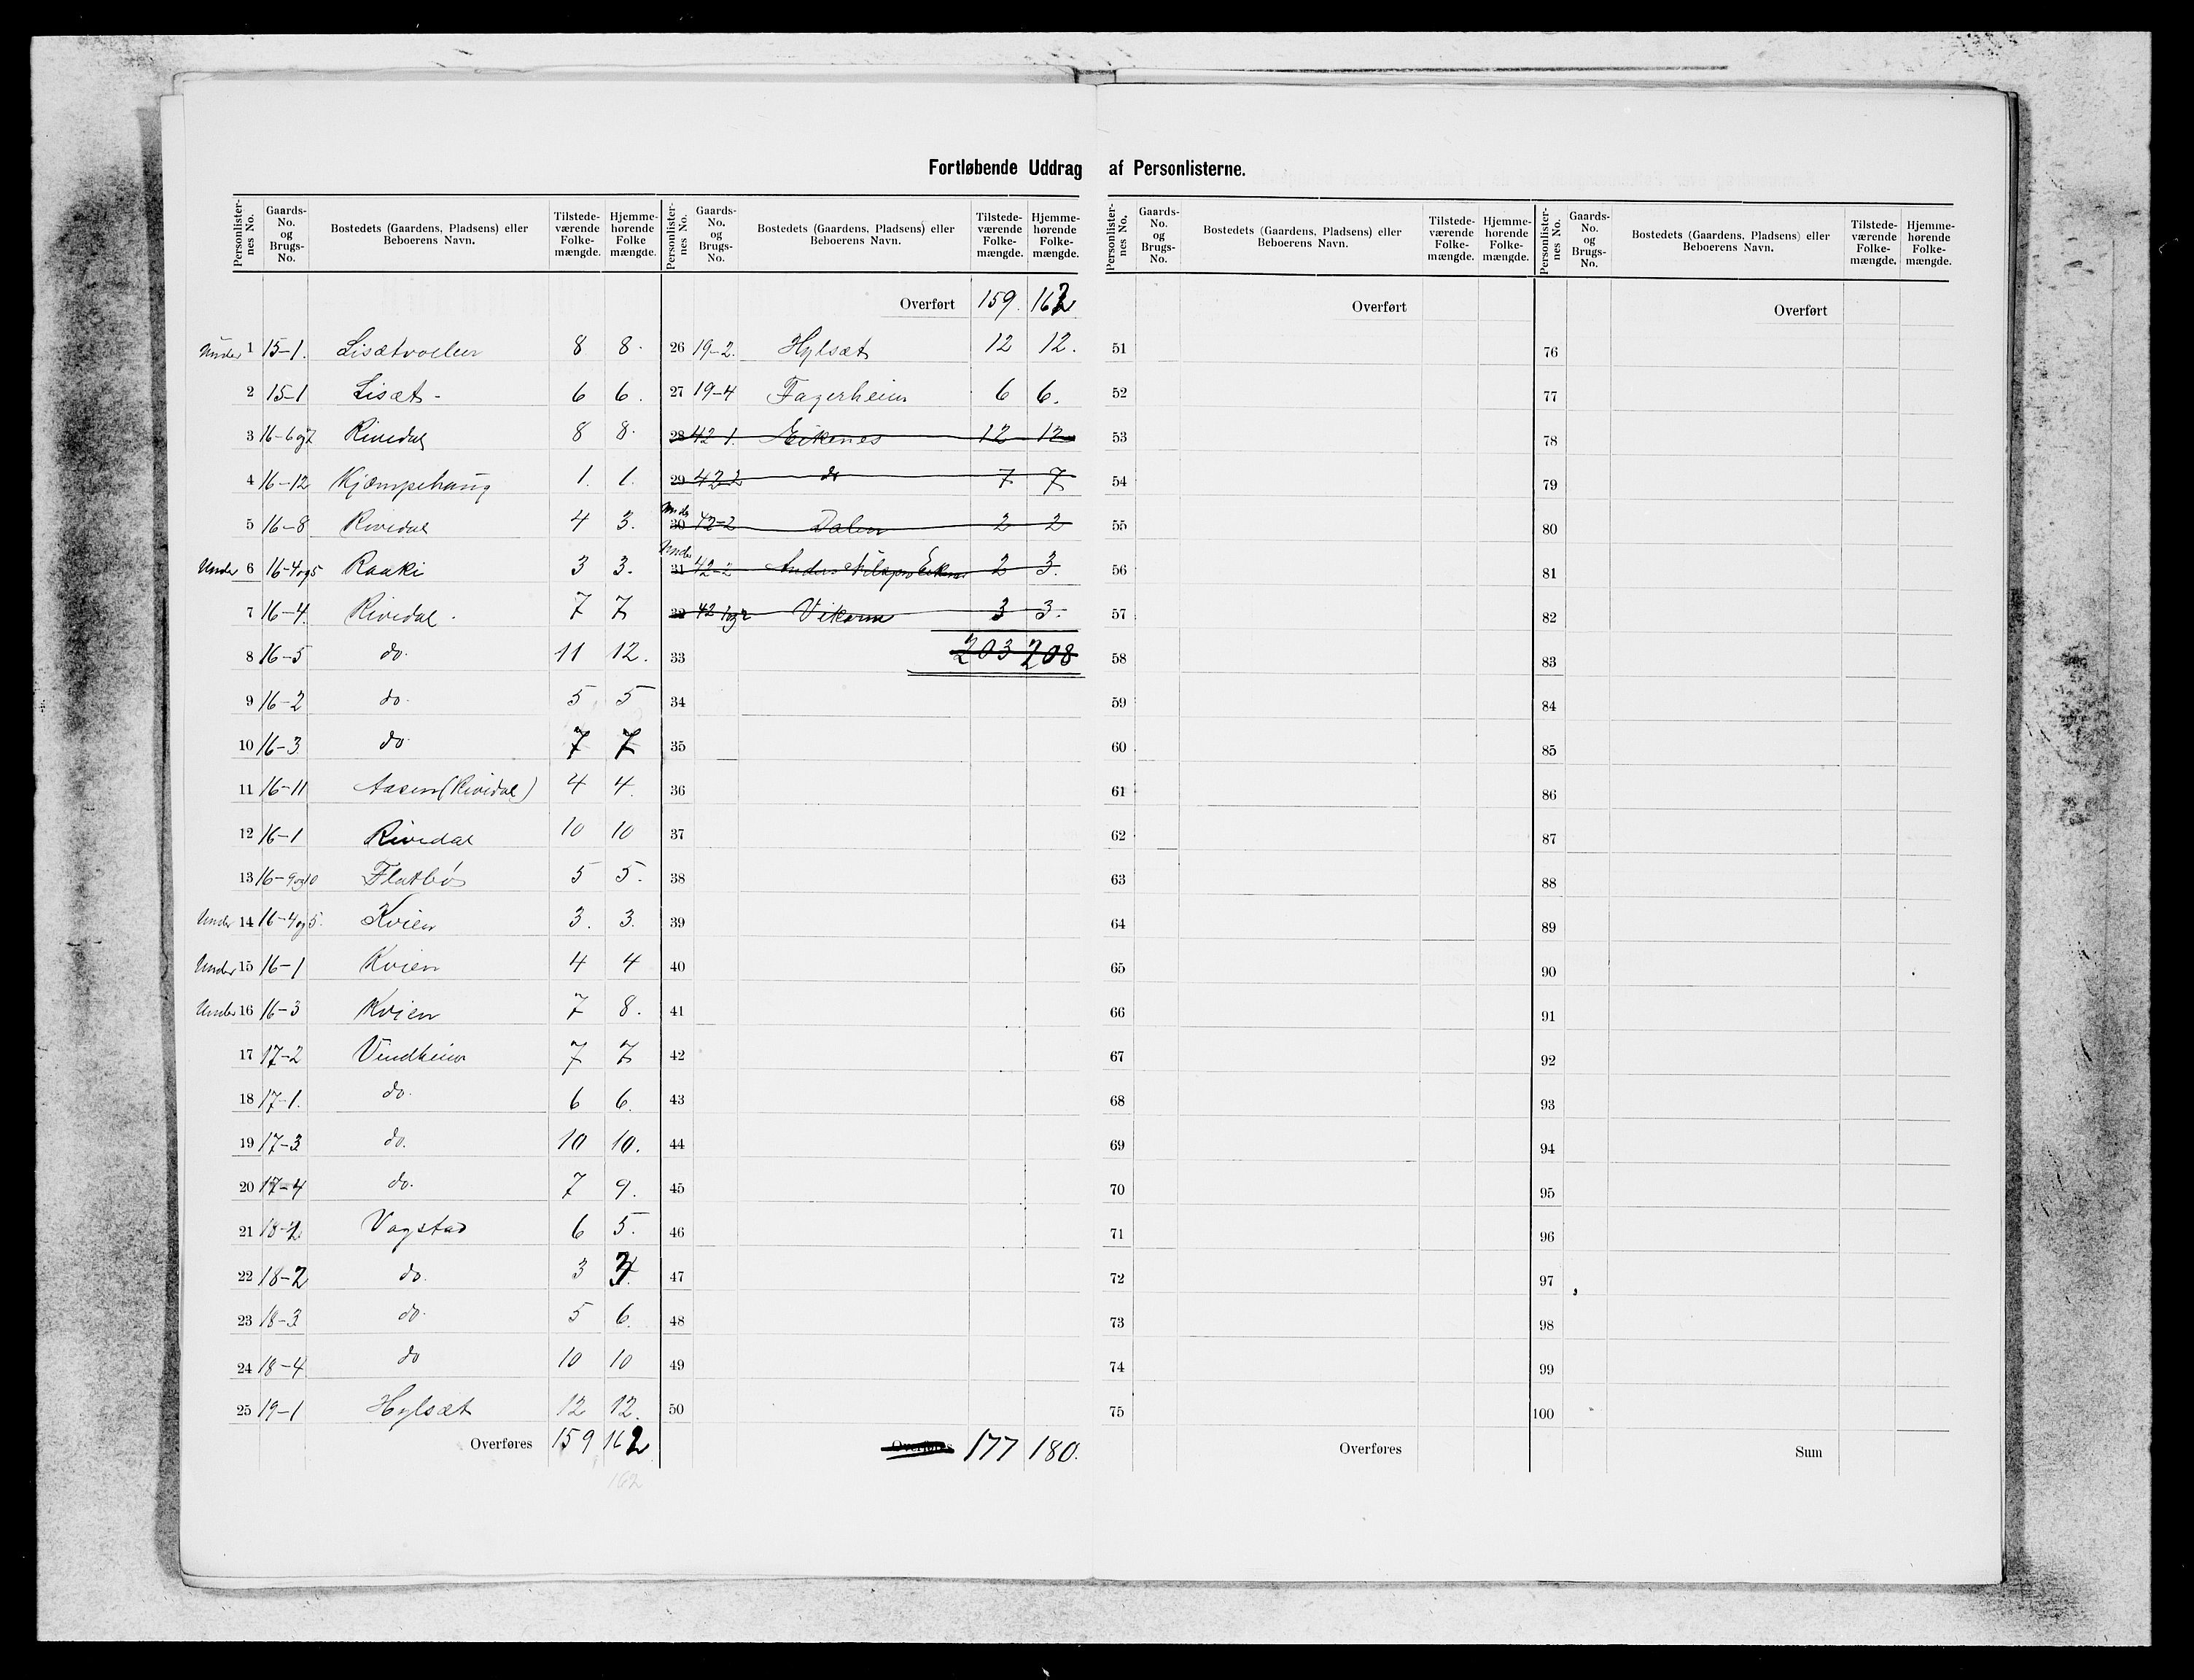 Fortløbende Uddrag af Personlisterne.
Personlister-nes No. | Gaards-No. og Brugs-No. | Bostedets (Gaardens, Pladsens) eller Beboerens Navn. | Tilstede-værende Folke-mængde. | Hjemme-hørende Folke mængde.
Under 1 15-1. Lisætvollen 8 8.
2 15-1 Lisæt- 6 6.
3 16-6og7 Rivedal 8 8.
4 16-12 Kjæmpehaug 1. 1.
5 16-8 Rivedal 4 3.
Under 6 16-4og5 Raaki 3 3.
7 16-4. Rivedal. 7 7
8 16-5 do. 11 12.
9 16-2 do. 5 5
10 16-3 do. 7 7
11 16-11 Aasen (Rivedal) 4 4.
12 16-1 Rivedal 10 10
13 16-9og10 Flatbø 5 5.
Under 14 16-4og5. Kvien 3. 3.
Under 15 16-1 Kvien 4 4
Under 16 16-3 Kvien 7 8.
17 17-2 Vindheim 7 7
18 17-1. do. 6 6.
19 17-3 do. 10 10.
20 17-4 do. 7 9.
21 18-1 Vagstad 6 5.
22 18-2 do. 3 3.
23 18-3 do. 5 6.
24 18-4 do 10 10
25 19-1 Hylsæt 12 12.
Overføres 159 162
162
Personlister-nes No. | Gaards-No. og Brugs-No. | Bostedets (Gaardens, Pladsens) eller Beboerens Navn. | Tilstede-værende Folke-mængde. | Hjemme-hørende Folke-mængde.
Overført 159. 162
26 19-2. Hylsæt 12 12.
27 19-4 Fagerheim 6 6.
28 42-1. Eikenes 12 12
29 42-2 do 7 7
Under 30 42-2 Dalen 2 2
Under 31 42-2 Anders Eikenes 2 3.
32 42 1og2 Vikorne 3 3.
33 203 208
34
35
36
37
38
39
40
41
42
43
44
45
46
47
48
49
50
Overføres 177 180.
Personlister-nes No. | Gaards-No. og Brugs-No. | Bostedets (Gaardens, Pladsens) eller Beboerens Navn. | Tilstede-værende Folke-mængde. | Hjemme-hørende Folke-mængde.
Overført
51
52
53
54
55
56
57
58
59
60
61
62
63
64
65
66
67
68
69
70
71
72
73
74
75
Overføres
Personlister-nes No. | Gaards-No. og Brugs-No. | Bostedets (Gaardens, Pladsens) eller Beboerens Navn. | Tilstede-værende Folke-mængde. | Hjemme-hørende Folke-mængde.
Overført
76
77
78
79
80
81
82
83
84
85
86
87
88
89
90
91
92
93
94
95
96
97
98
99
100
Sum